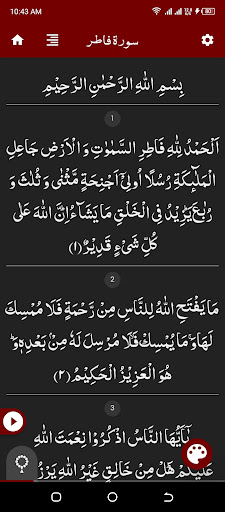 10:43 AM
سورة فاطر
بِسْمِ اللّٰهِ الرَّحْمٰنِ الرَّحِيْمِ
1
اَلْحَمْدُ لِلّٰهِ فَاطِرِ السَّمٰوٰتِ وَ الْاَرْضِ جَاعِلِ
الْمَلٰٓىِٕكَةِ رُسُلًا اُولِیْۤ اَجْنِحَةٍ مَّثْنٰى وَ ثُلٰثَ وَ
رُبٰعَ یَزِیْدُ فِی الْخَلْقِ مَا یَشَآءُ اِنَّ اللّٰهَ عَلٰى
كُلِّ شَیْءٍ قَدِیْرٌ (۱)
2
مَا یَفْتَحِ اللّٰهُ لِلنَّاسِ مِنْ رَّحْمَةٍ فَلَا مُمْسِكَ
لَهَا وَ مَا یُمْسِكْ فَلَا مُرْسِلَ لَهٗ مِنْۢ بَعْدِهٖ وَ
هُوَ الْعَزِیْزُ الْحَكِیْمُ (۲)
3
یٰۤاَیُّهَا النَّاسُ اذْكُرُوْا نِعْمَتَ اللّٰهِ
عَلَیْكُمْ هَلْ مِنْ خَالِقٍ غَیْرُ اللّٰهِ یَرْزُ